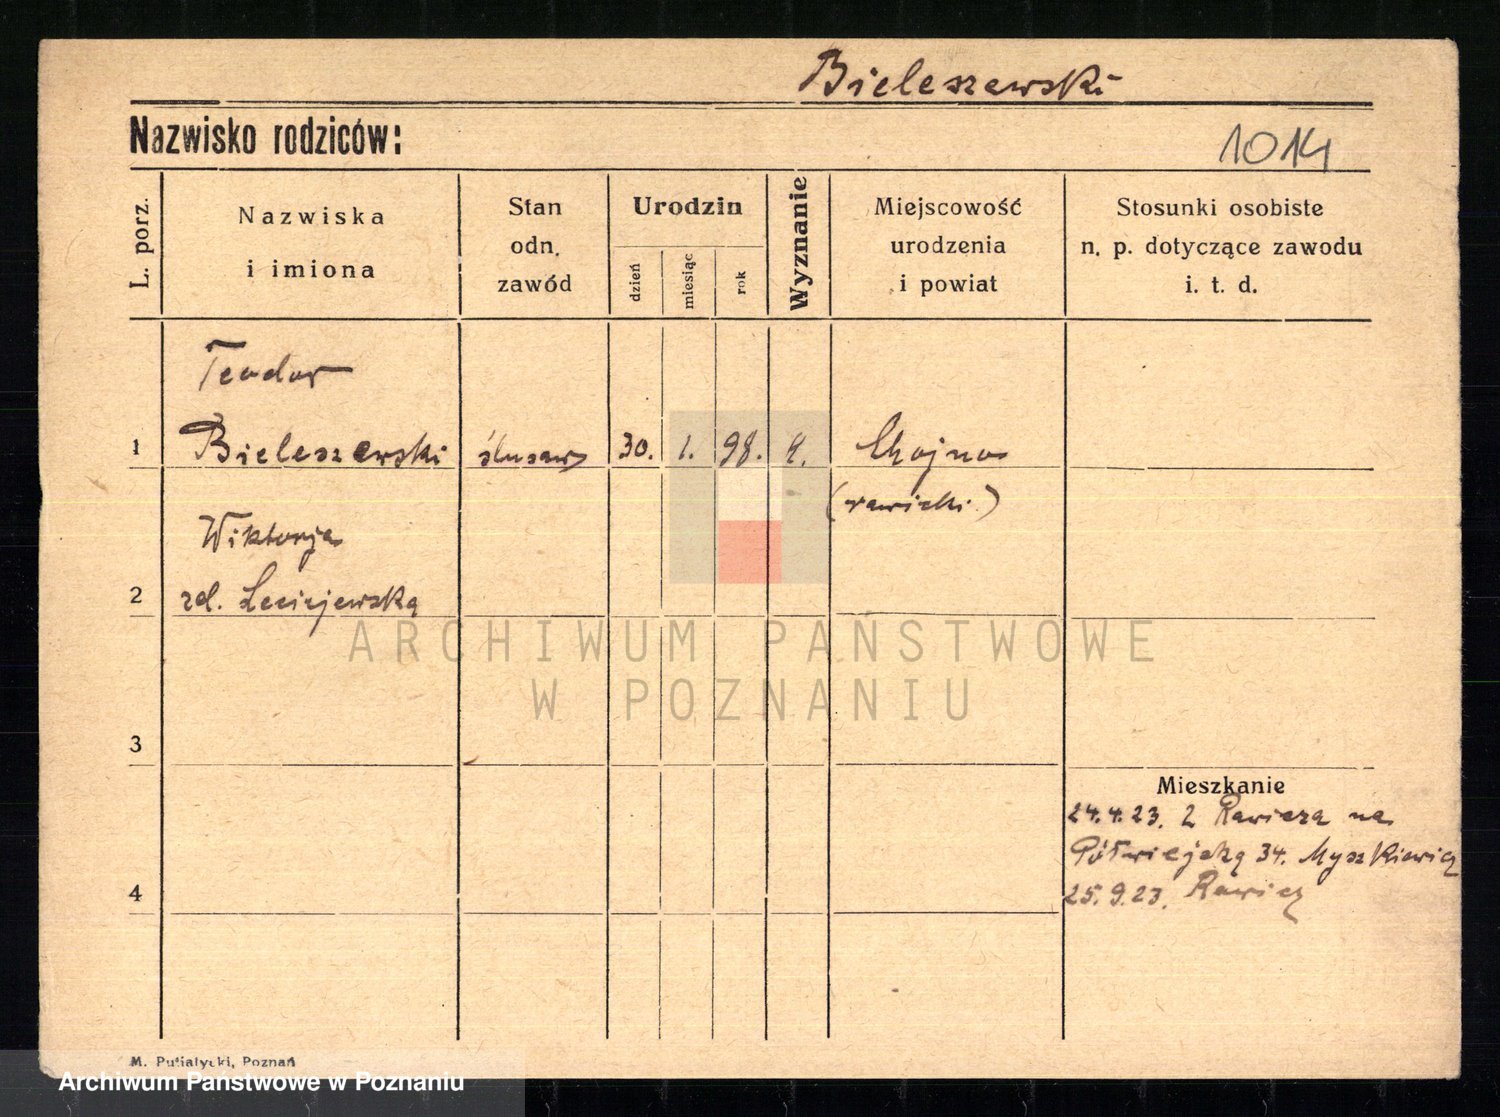 Bieleszewski
Nazwisko rodziców:
1014
L. porz.
Nazwiska
i imiona
Stan
odn.
zawód
Urodzin
dzień
miesiąc
rok
Wyznanie
Miejscowość
urodzenia
i powiat
Stosunki osobiste
n. p. dotyczące zawodu
i. t. d.
Teodor
1 Bieleszewski ślusarz 30. 1. 98. Chojno
(rawicki)
Wiktorja
2
3
Mieszkanie
24.4.23. z Rawicza na
Półwiejską 34. Myszkiewicz
4 25.9.23. Rawicz
ARCHIWUM PAŃSTWOWE
W POZNANIU
M. Putiatycki, Poznań
Archiwum Państwowe w Poznaniu